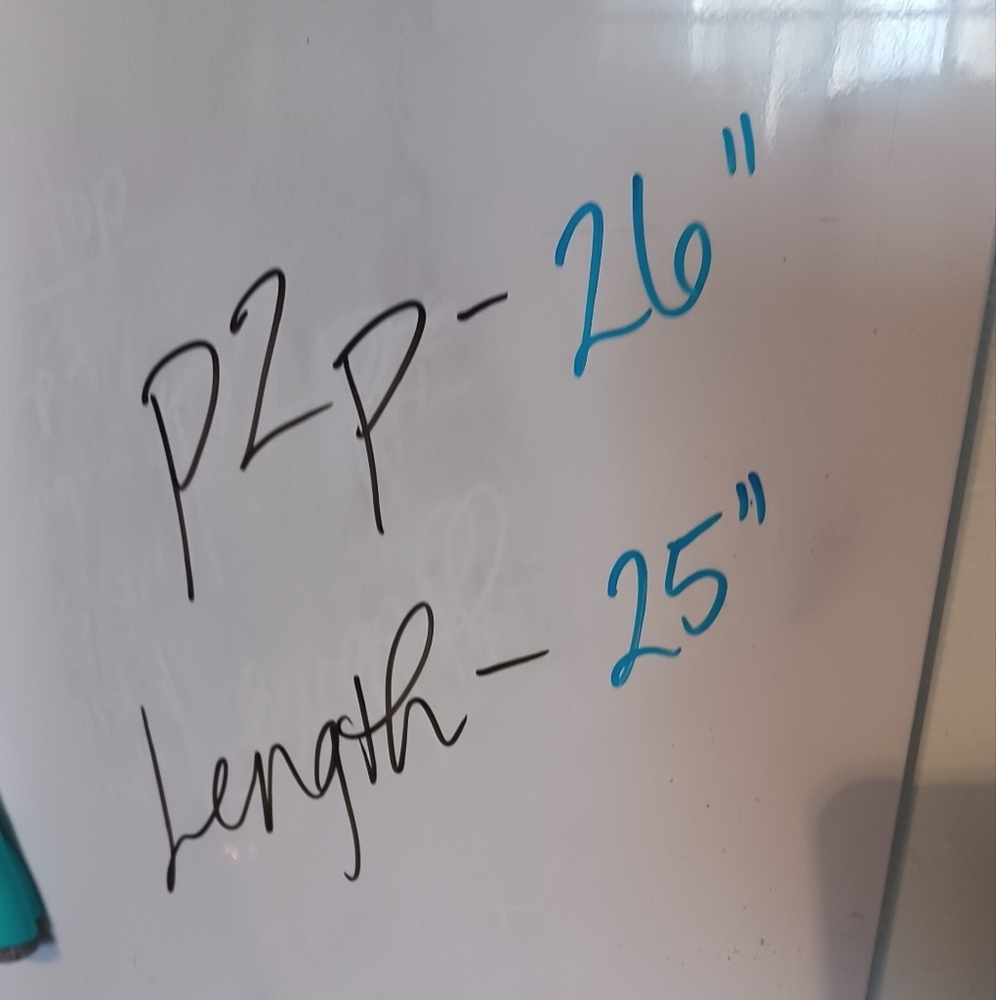 P2P - 26"
Length - 25"